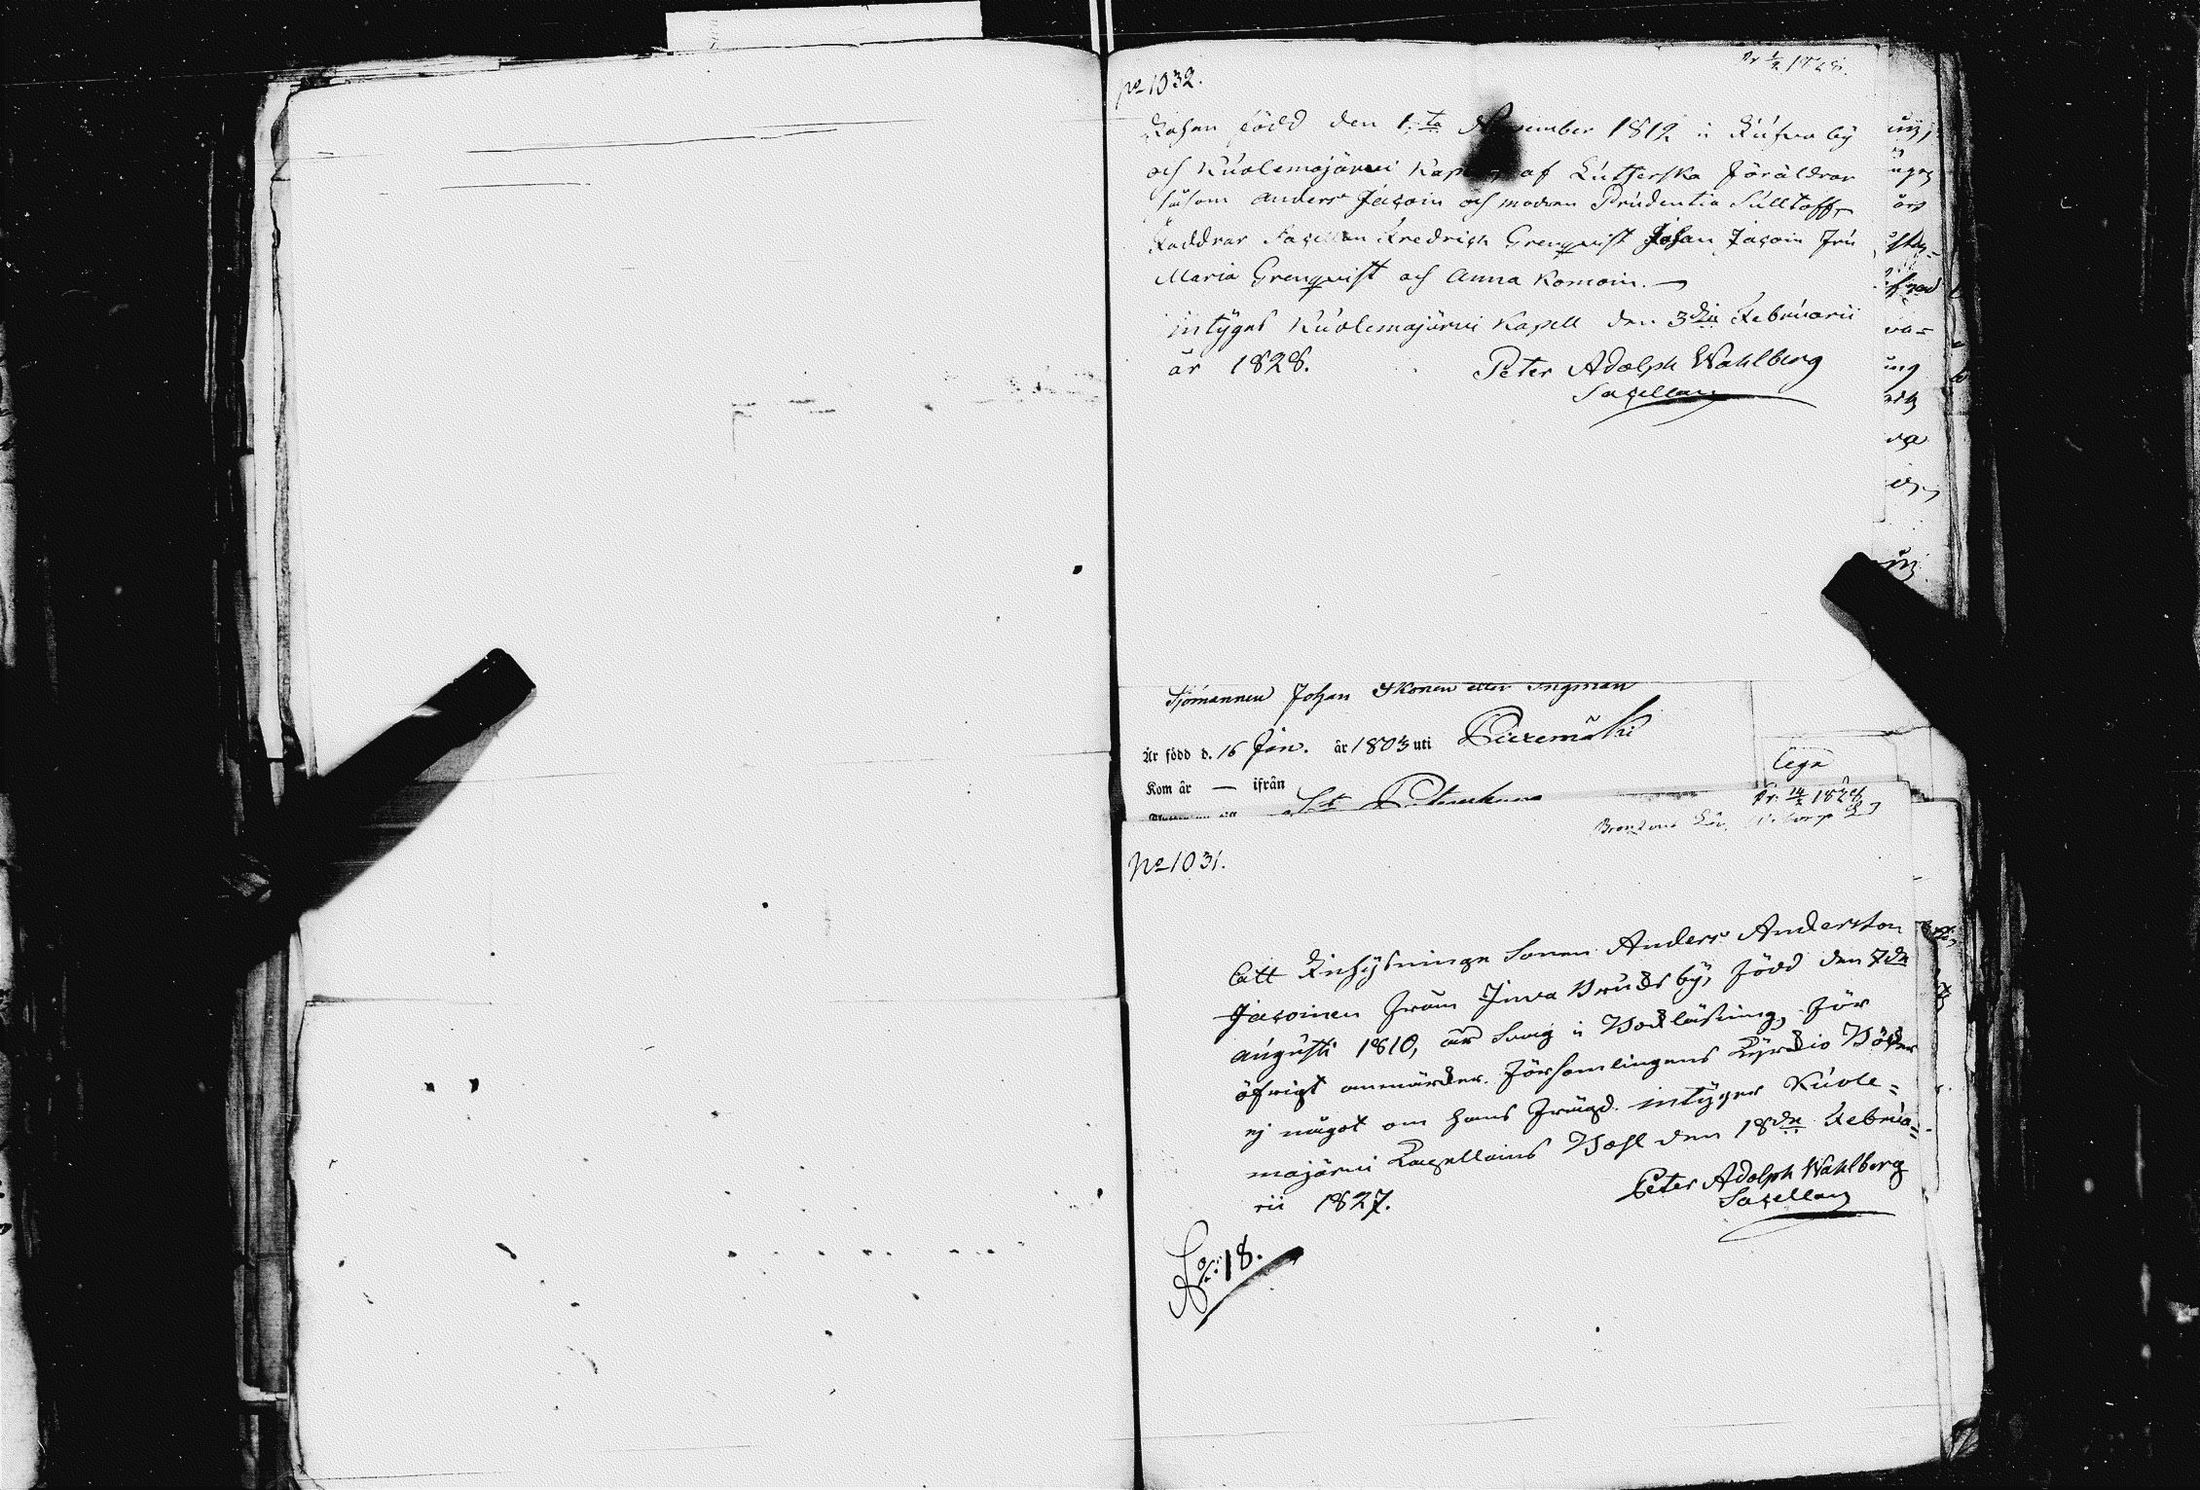 No 1032.
Johan född den 1:sta November 1812 i Kúfwa bÿ
och Kúolemajärwi Kapell af Lútherska Föräldrar
såsom Anders Jaçoin och modren Prúdentia Súlltoff,
Faddrar Saçellan Fredrich Grenqvist Johan Jaçoin Frú
Maria Grenqvist och Anna Komoin.
intÿgas Kúolemajärwi Kapell den 3die Februarii
år 1828.
Peter Adolph Wahlberg
Saçellan
Sjömannen Johan Ikonen eller Ingman
Är född d. 16 Jan. år 1803 uti
Kom år — ifrån
St Petersburg
No 1031.
Att Inhÿsninge Sonen Anders Andersson
Jaçoinen från bÿ, född den 7de
Augústi 1810, är svag i Bokläsning, för
öfrigt anmärker Församlingens Kÿrkio Böker
ej något om hans frägd. intÿgar Kúole=
majärwi Capellains Bohl den 18de Februa=
rii 1827.
Peter Adolph Wahlberg
Saçellan
18.